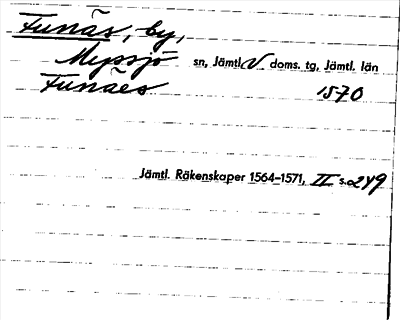 Funäs, by,
Myssjö sn, Jämtl. V doms. tg, Jämtl. län
Funäes 1570
Jämtl. Räkenskaper 1564-1571, II s. 249